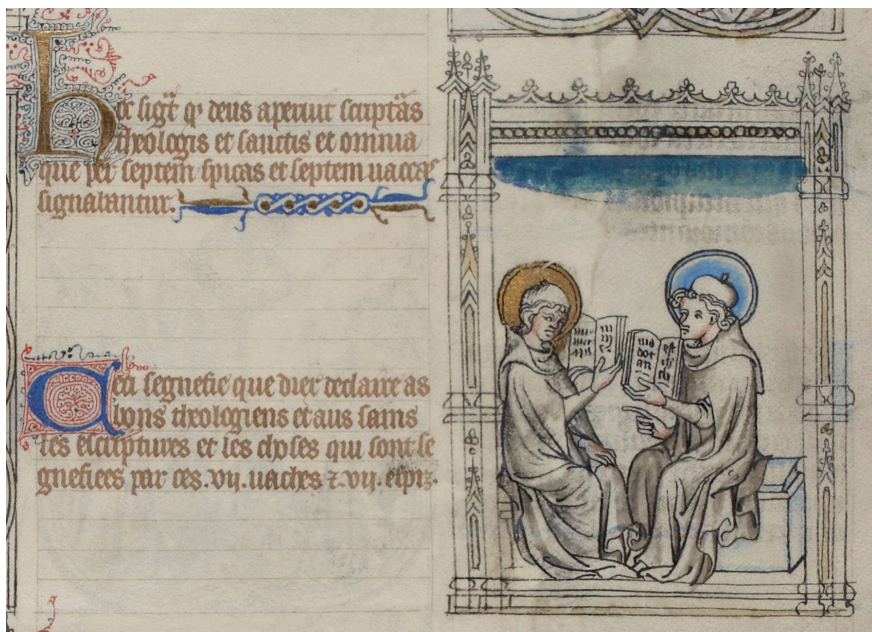 Hoc sigt̄ q̄ deus aperuit scͥptās
theologis et sanctis et omnia
que per septem spicas et septem uaccas
signabantur.
Ceci segnefie que diex declaire as
bons theologiens et aus sains
les escriptures et les choses qui sont se
gnefiees par ces .vij. uaches ⁊ .vij. espiz.